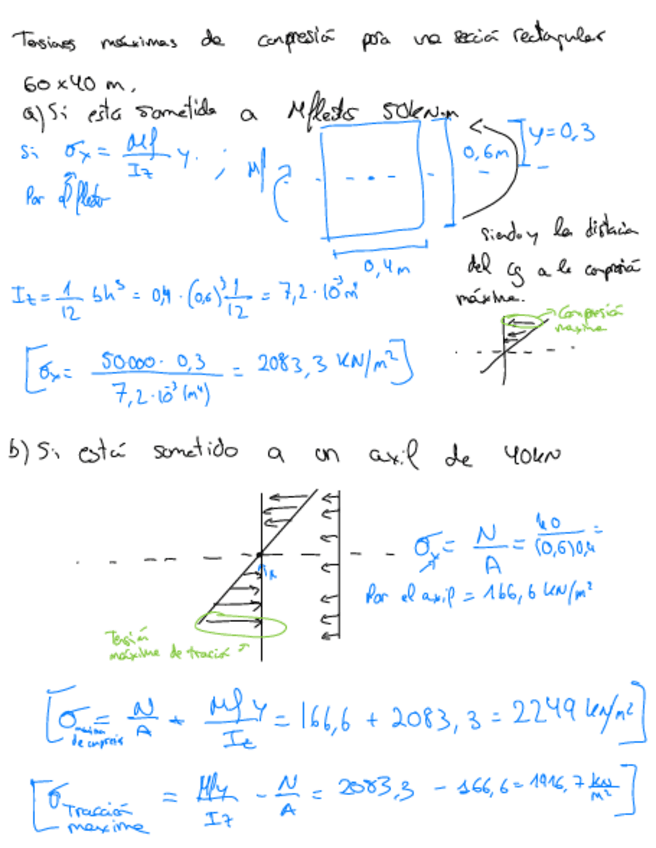 Tensiones máximas de compresión para una sección rectangular
60 x 40 m,
a) Si esta sometida a Mflector 50kN·m
Si σx = Mf/Iz y. ; Mf
Por el flector
0,6m
y = 0,3
0,4m
siendo y la distancia
del cg a la compresión
máxima.
Iz = 1/12 bh³ = 0,4 · (0,6)³ 1/12 = 7,2 · 10⁻³ m⁴
Compresión
maxima
[σx = 50000 · 0,3 / 7,2 · 10⁻³ (m⁴) = 2083,3 KN/m²]
b) Si está sometido a un axil de 40kN
σx = N/A = 40/(0,6)0,4 =
Por el axil = 166,6 kN/m²
Tensión
máxima de tracción
[σ maxima de compresión = N/A + Mf y/Iz = 166,6 + 2083,3 = 2249 kN/m²]
[σ Tracción maxima = Mf y/Iz - N/A = 2083,3 - 166,6 = 1916,7 kN/m²]